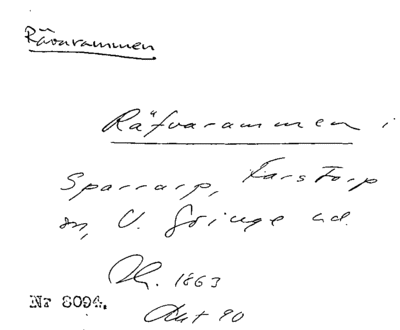 Rävarammen
Räfvarammen i
Sparrarp, Farstorp
sn, V. Göinge hd.
1863
Nr 8094. Akt 90